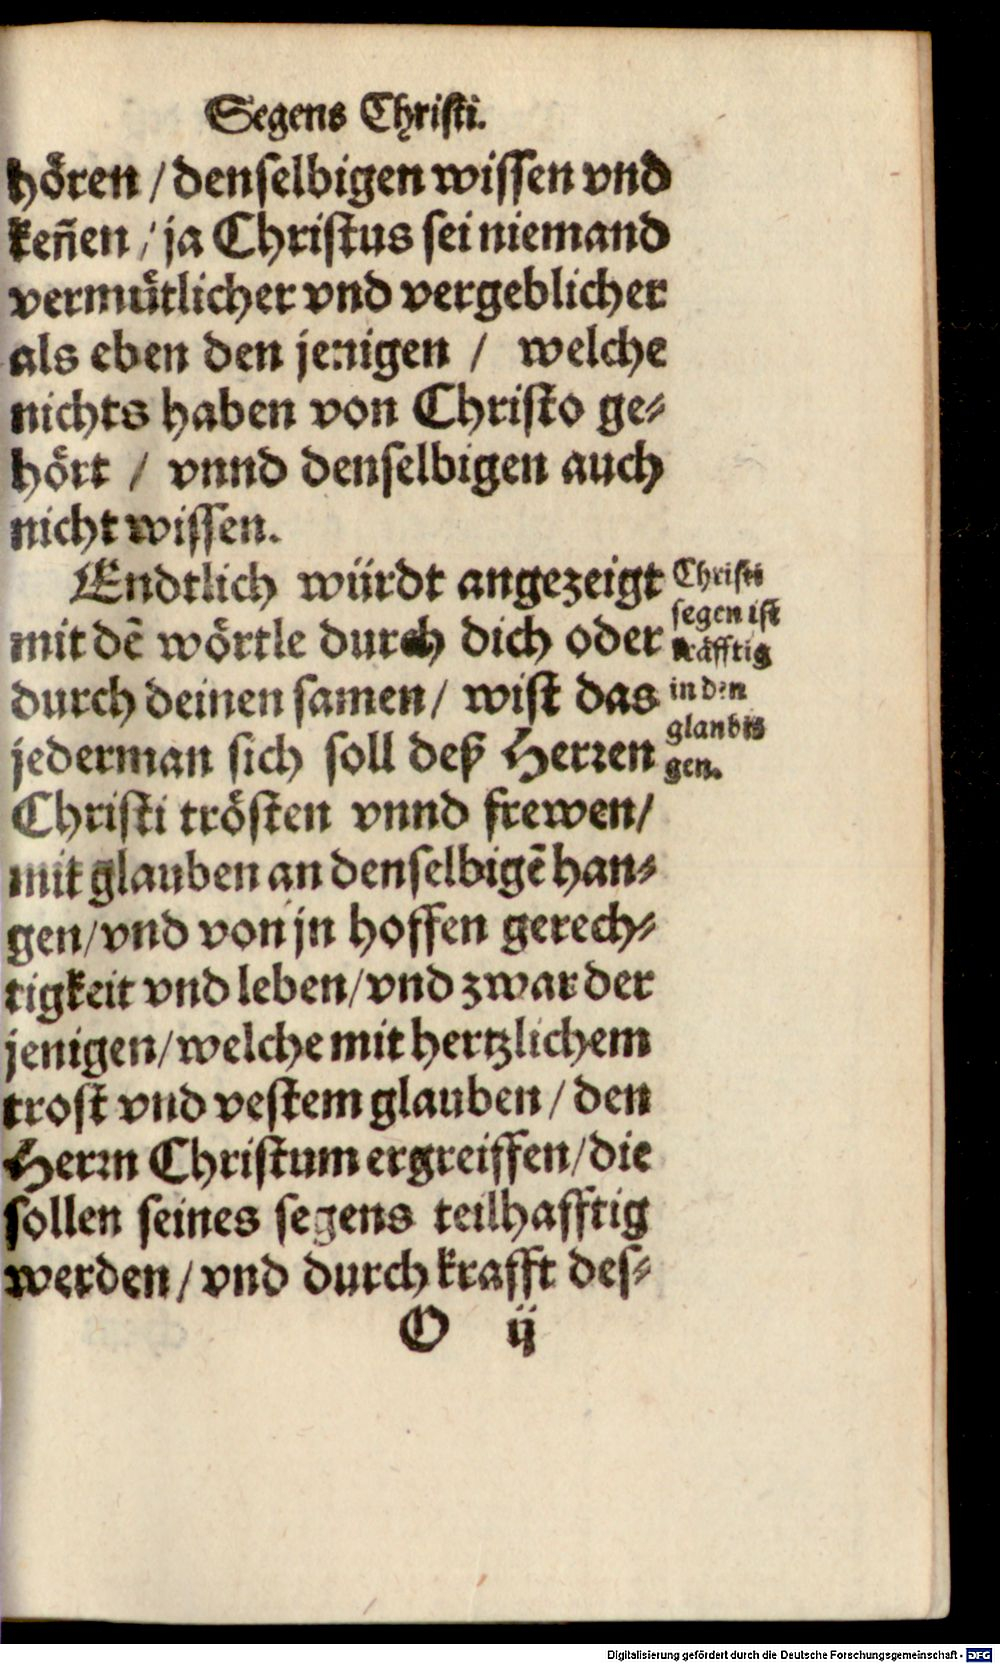 Segens Christi.
hören / denselbigen wissen vnd
keñen / ja Christus sei niemand
vermütlicher vnd vergeblicher
als eben den jenigen / welche
nichts haben von Christo ge-
hört / vnnd denselbigen auch
nicht wissen.
Endtlich würdt angezeigt
mit dẽ wörtle durch dich oder
durch deinen samen / wist das
jederman sich soll deß Herren
Christi trösten vnnd frewen /
mit glauben an denselbigẽ han-
gen / vnd von jn hoffen gerech-
tigkeit vnd leben / vnd zwar der
jenigen / welche mit hertzlichem
trost vnd vestem glauben / den
Herrn Christum ergreiffen / die
sollen seines segens teilhafftig
werden / vnd durch krafft des-
O ij
Christi
segen ist
kräfftig
in den
glaubi-
gen.
Digitalisierung gefördert durch die Deutsche Forschungsgemeinschaft - DFG